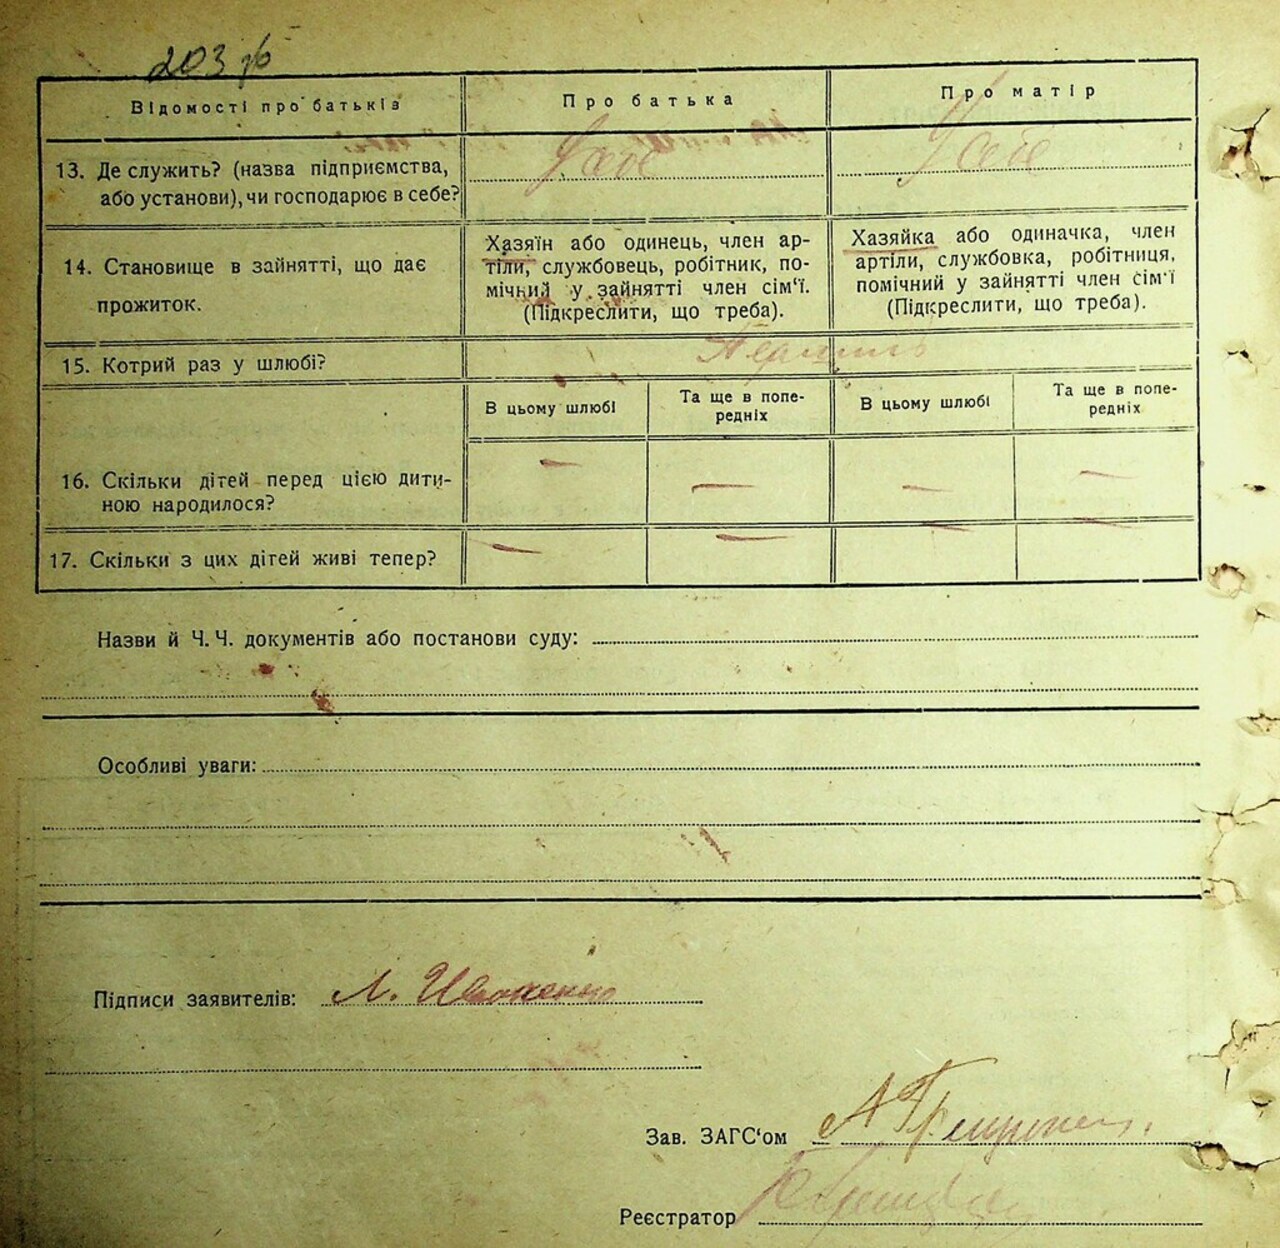 203 зв
Відомості про батьків
Про батька
Про матір
13. Де служить? (назва підприємства,
або установи), чи господарює в себе?
У себе
У себе
14. Становище в зайнятті, що дає
прожиток.
Хазяїн або одинець, член ар-
тіли, службовець, робітник, по-
мічний у зайнятті член сім'ї.
(Підкреслити, що треба).
Хазяйка або одиначка, член
артіли, службовка, робітниця,
помічний у зайнятті член сім'ї
(Підкреслити, що треба).
15. Котрий раз у шлюбі?
В цьому шлюбі
Та ще в попе-
редніх
В цьому шлюбі
Та ще в попе-
редніх
16. Скільки дітей перед цією дити-
ною народилося?
— — — —
17. Скільки з цих дітей живі тепер?
— — — —
Назви й Ч. Ч. документів або постанови суду:
Особливі уваги:
Підписи заявителів: Л.
Зав. ЗАГС'ом А
Реєстратор